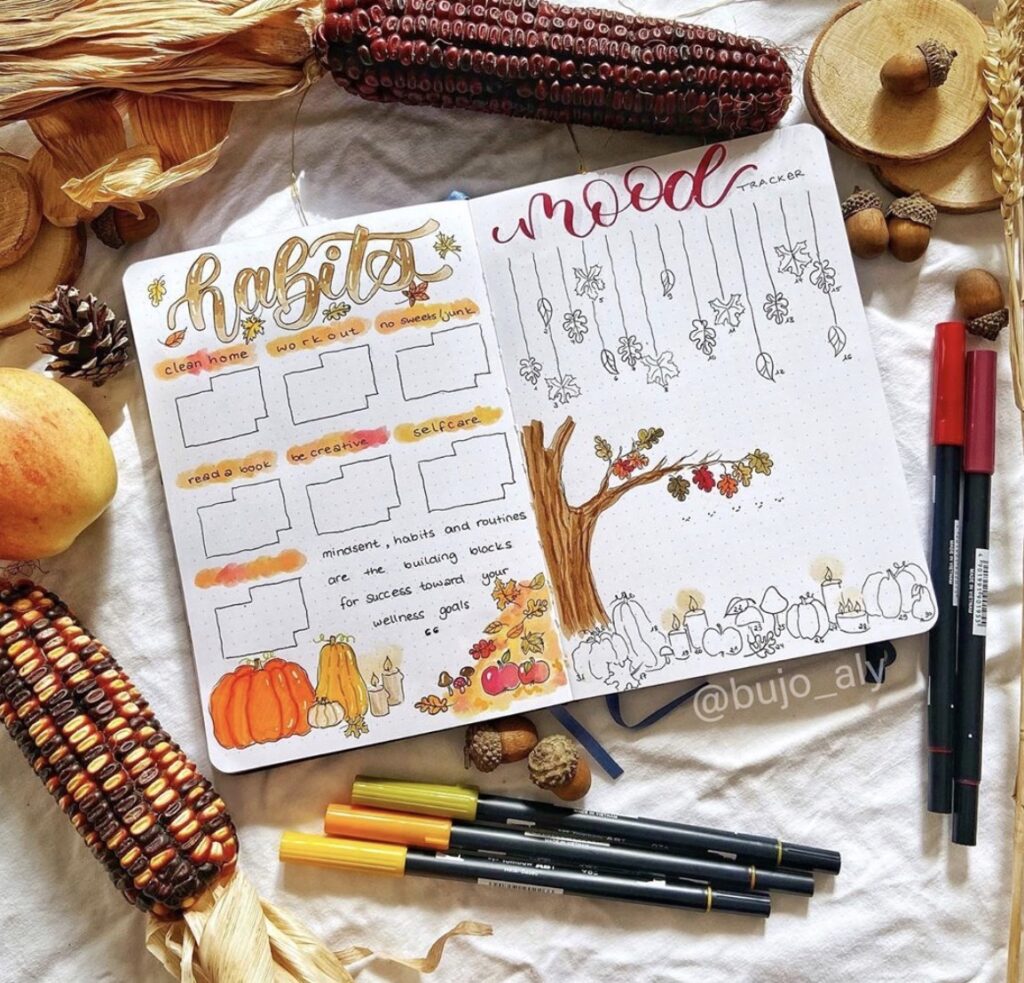 habits
clean home
work out
no sweets/junk
read a book
be creative
selfcare
mindsent, habits and routines
are the building blocks
for success toward your
wellness goals
mood TRACKER
5
14
15
11
13
10
16
12
3
4
31
30
@bujo_aly